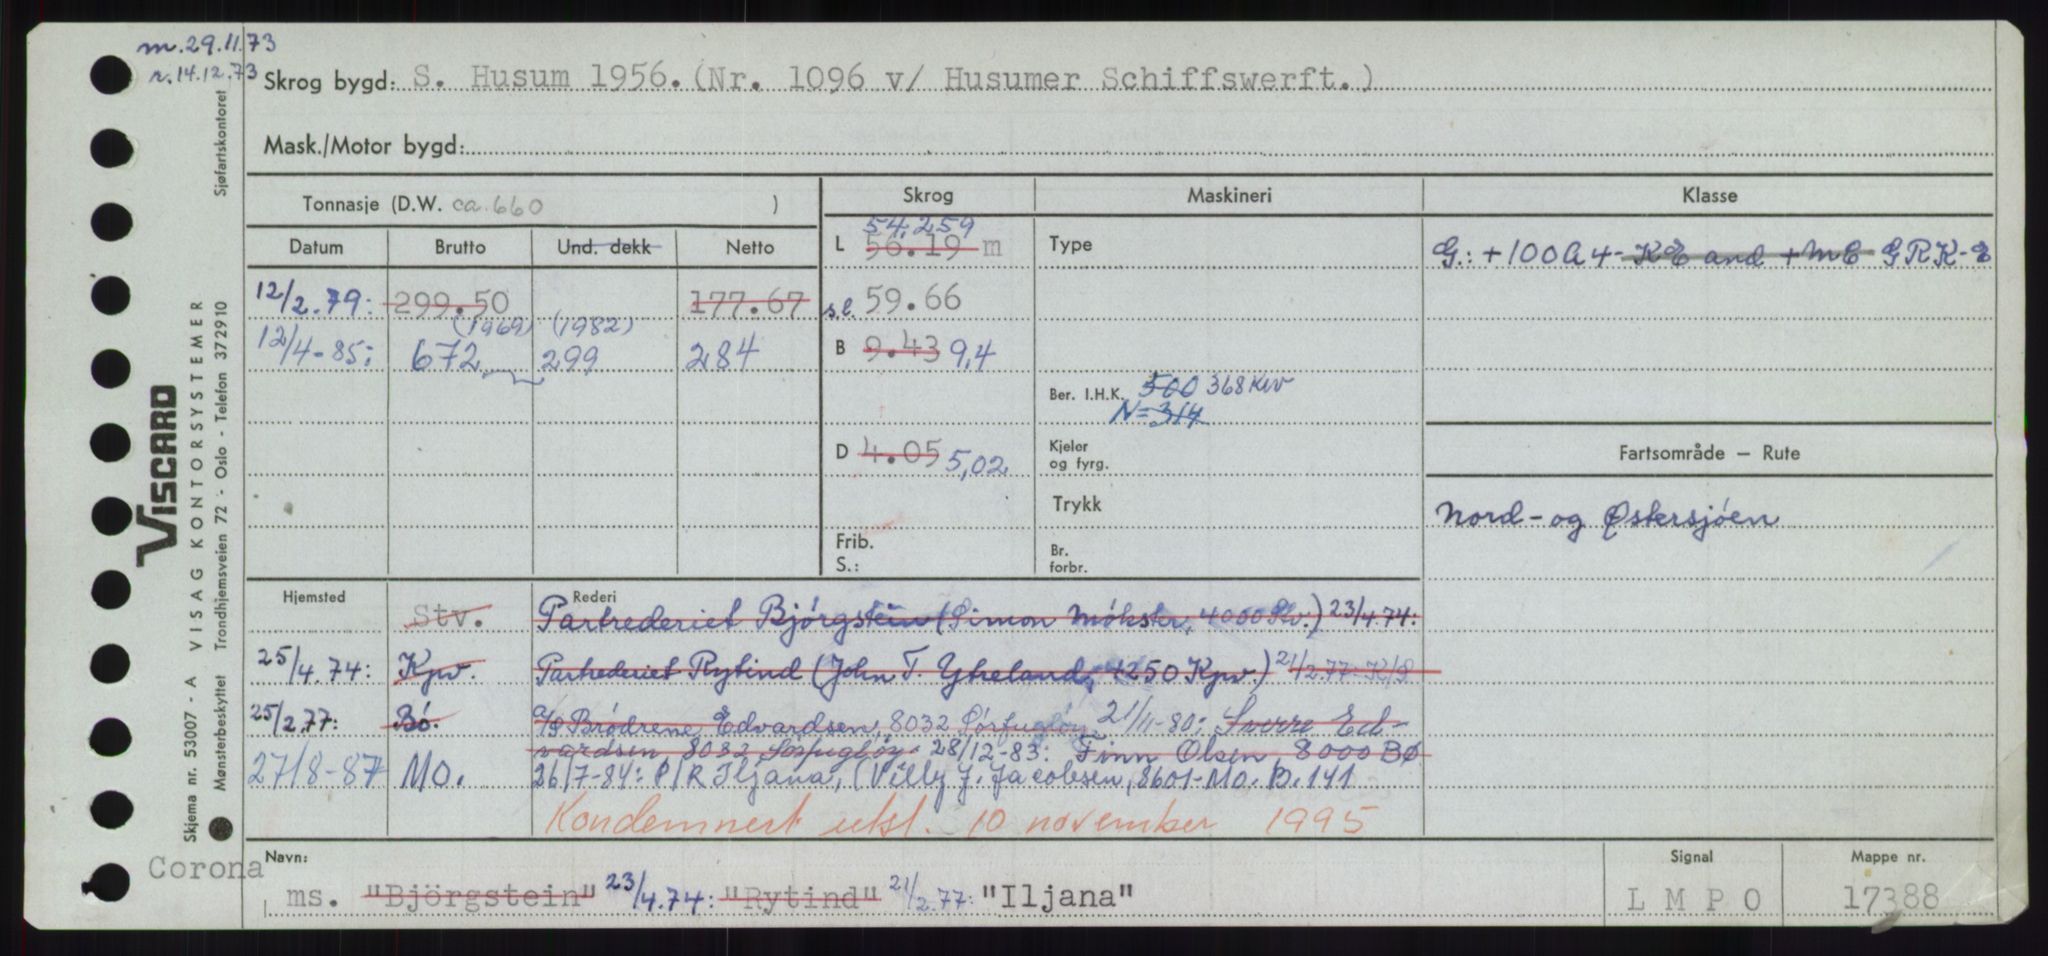 m. 29.11.73
r. 14.12.73
Skrog bygd: S. Husum 1956. (Nr. 1096 v/ Husumer Schiffswerft.)
Mask./Motor bygd:
Tonnasje (D.W. ca. 660 )
Skrog Maskineri Klasse
Datum Brutto Und. dekk Netto
54,259
L 56.19 m
Type
G.: +100A4- KE and +MC GRK-E
12/2.79: 299.50 177.67
s.l. 59.66
(1969) (1982)
12/4-85: 672 299 284
B 9.43 9,4
Ber. I.H.K. 500 368 KW
N=314
D 4.05 5,02
Kjeler
og fyrg.
Fartsområde — Rute
Trykk
Nord- og Østersjøen
Frib.
S.:
Br.
forbr.
Hjemsted Rederi
Stv. Partrederiet Bjørgstein (Simon Møkster, 4000 Stv.) 23/4.74:
25/4.74: Kpv. Partrederiet Rytind (John T. Ytreland, 4250 Kpv.) 21/2.77: K/S
25/2.77: Bø. A/S Brødrene Edvardsen, 8032 Sørfugløy 21/11-80: Sverre Ed-
vardsen 8032 Sørfugløy 28/12-83: Finn Olsen 8000 BØ
27/8-87 Mo. 26/7-84: P/R Iljana, (Villy J. Jacobsen, 8601-Mo. B. 141
Kondemnert utsl. 10 november 1995
Corona
Navn:
ms. "Björgstein" 23/4.74: "Rytind" 21/2.77: "Iljana"
Signal
L M P O
Mappe nr.
17388
VISCARD
Skjema nr. 53007 - A VISAG KONTORSYSTEMER
Mønsterbeskyttet Trondhjemsveien 72 - Oslo - Telefon 372910
Sjøfartskontoret